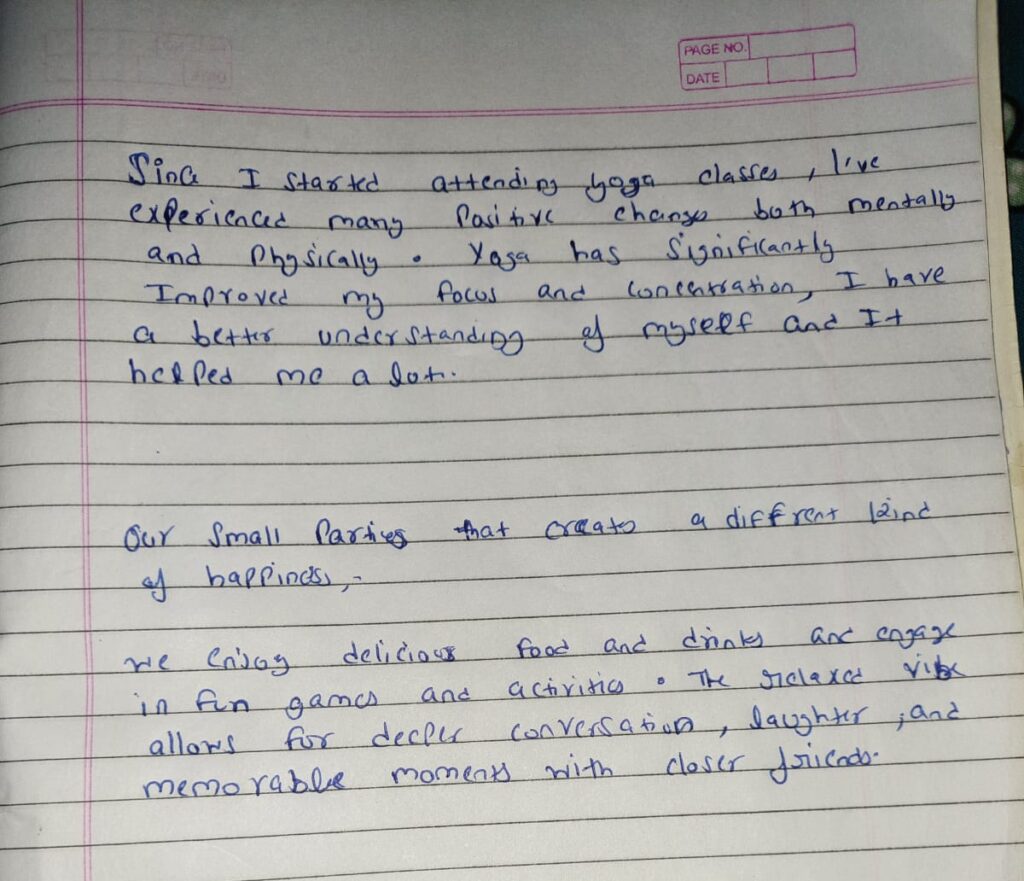 PAGE NO.
DATE
Since I started attending yoga classes, I've
experienced many Positive changes both mentally
and Physically. Yoga has Significantly
Improved my focus and concentration, I have
a better understanding of myself and It
helped me a lot.
Our Small Parties that creates a different kind
of happiness,-
we enjoy delicious food and drinks and engage
in fun games and activities. The relaxed vibe
allows for deeper conversation, laughter, and
memorable moments with closer friends.